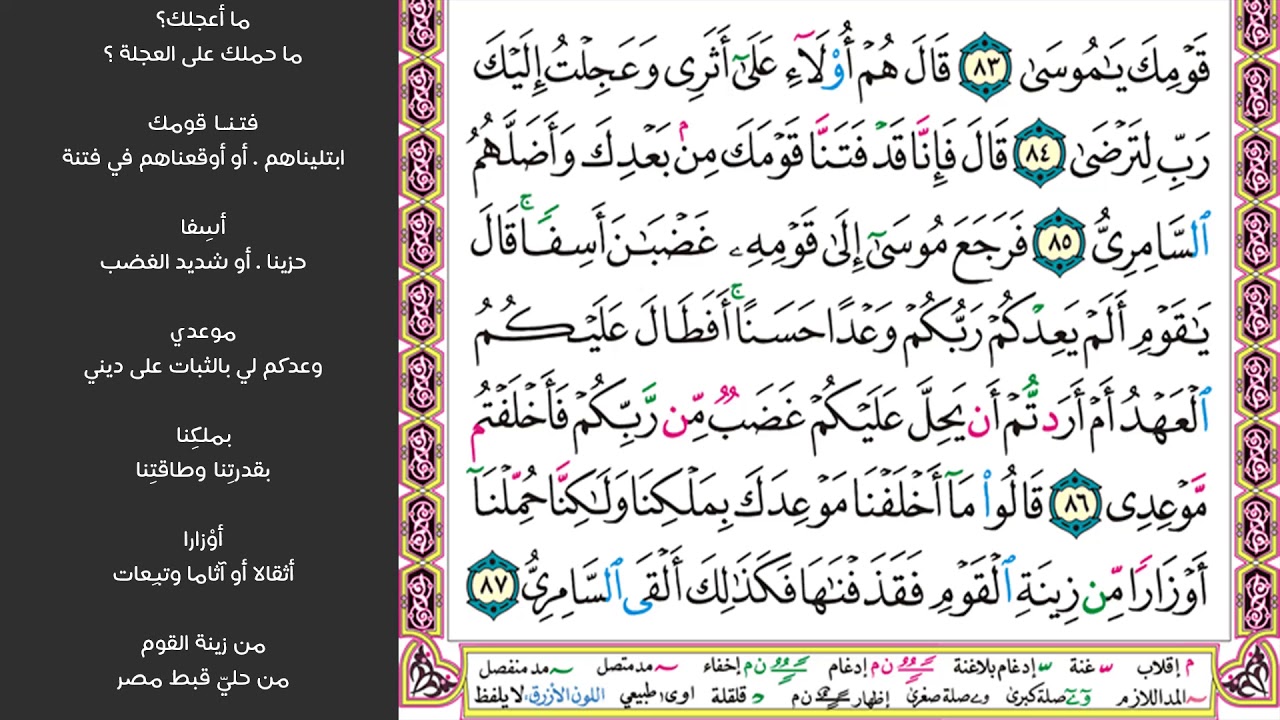 قَوْمِكَ يَٰمُوسَىٰ ٨٣ قَالَ هُمْ أُو۟لَآءِ عَلَىٰٓ أَثَرِى وَعَجِلْتُ إِلَيْكَ
رَبِّ لِتَرْضَىٰ ٨٤ قَالَ فَإِنَّا قَدْ فَتَنَّا قَوْمَكَ مِنۢ بَعْدِكَ وَأَضَلَّهُمُ
ٱلسَّامِرِىُّ ٨٥ فَرَجَعَ مُوسَىٰٓ إِلَىٰ قَوْمِهِۦ غَضْبَٰنَ أَسِفًا ۚ قَالَ
يَٰقَوْمِ أَلَمْ يَعِدْكُمْ رَبُّكُمْ وَعْدًا حَسَنًا ۚ أَفَطَالَ عَلَيْكُمُ
ٱلْعَهْدُ أَمْ أَرَدتُّمْ أَن يَحِلَّ عَلَيْكُمْ غَضَبٌ مِّن رَّبِّكُمْ فَأَخْلَفْتُم
مَّوْعِدِى ٨٦ قَالُوا۟ مَآ أَخْلَفْنَا مَوْعِدَكَ بِمَلْكِنَا وَلَٰكِنَّا حُمِّلْنَآ
أَوْزَارًا مِّن زِينَةِ ٱلْقَوْمِ فَقَذَفْنَٰهَا فَكَذَٰلِكَ أَلْقَى ٱلسَّامِرِىُّ ٨٧
م إقلاب س غنة س إدغام بلاغنة ن م إدغام ن م إخفاء مد متصل مد منفصل
المد اللازم صلة كبرى صلة صغرى إظهار ن م د قلقلة اوى ا طبيعي اللون الأزرق: لا يلفظ
ما أعجلك؟
ما حملك على العجلة ؟
فتنا قومك
ابتليناهم . أو أوقعناهم في فتنة
أسِفا
حزينا . أو شديد الغضب
موعدي
وعدكم لي بالثبات على ديني
بملكِنا
بقدرتِنا وطاقتِنا
أوْزارا
أثقالا أو آثاما وتبِعات
من زينة القوم
من حليّ قبط مصر